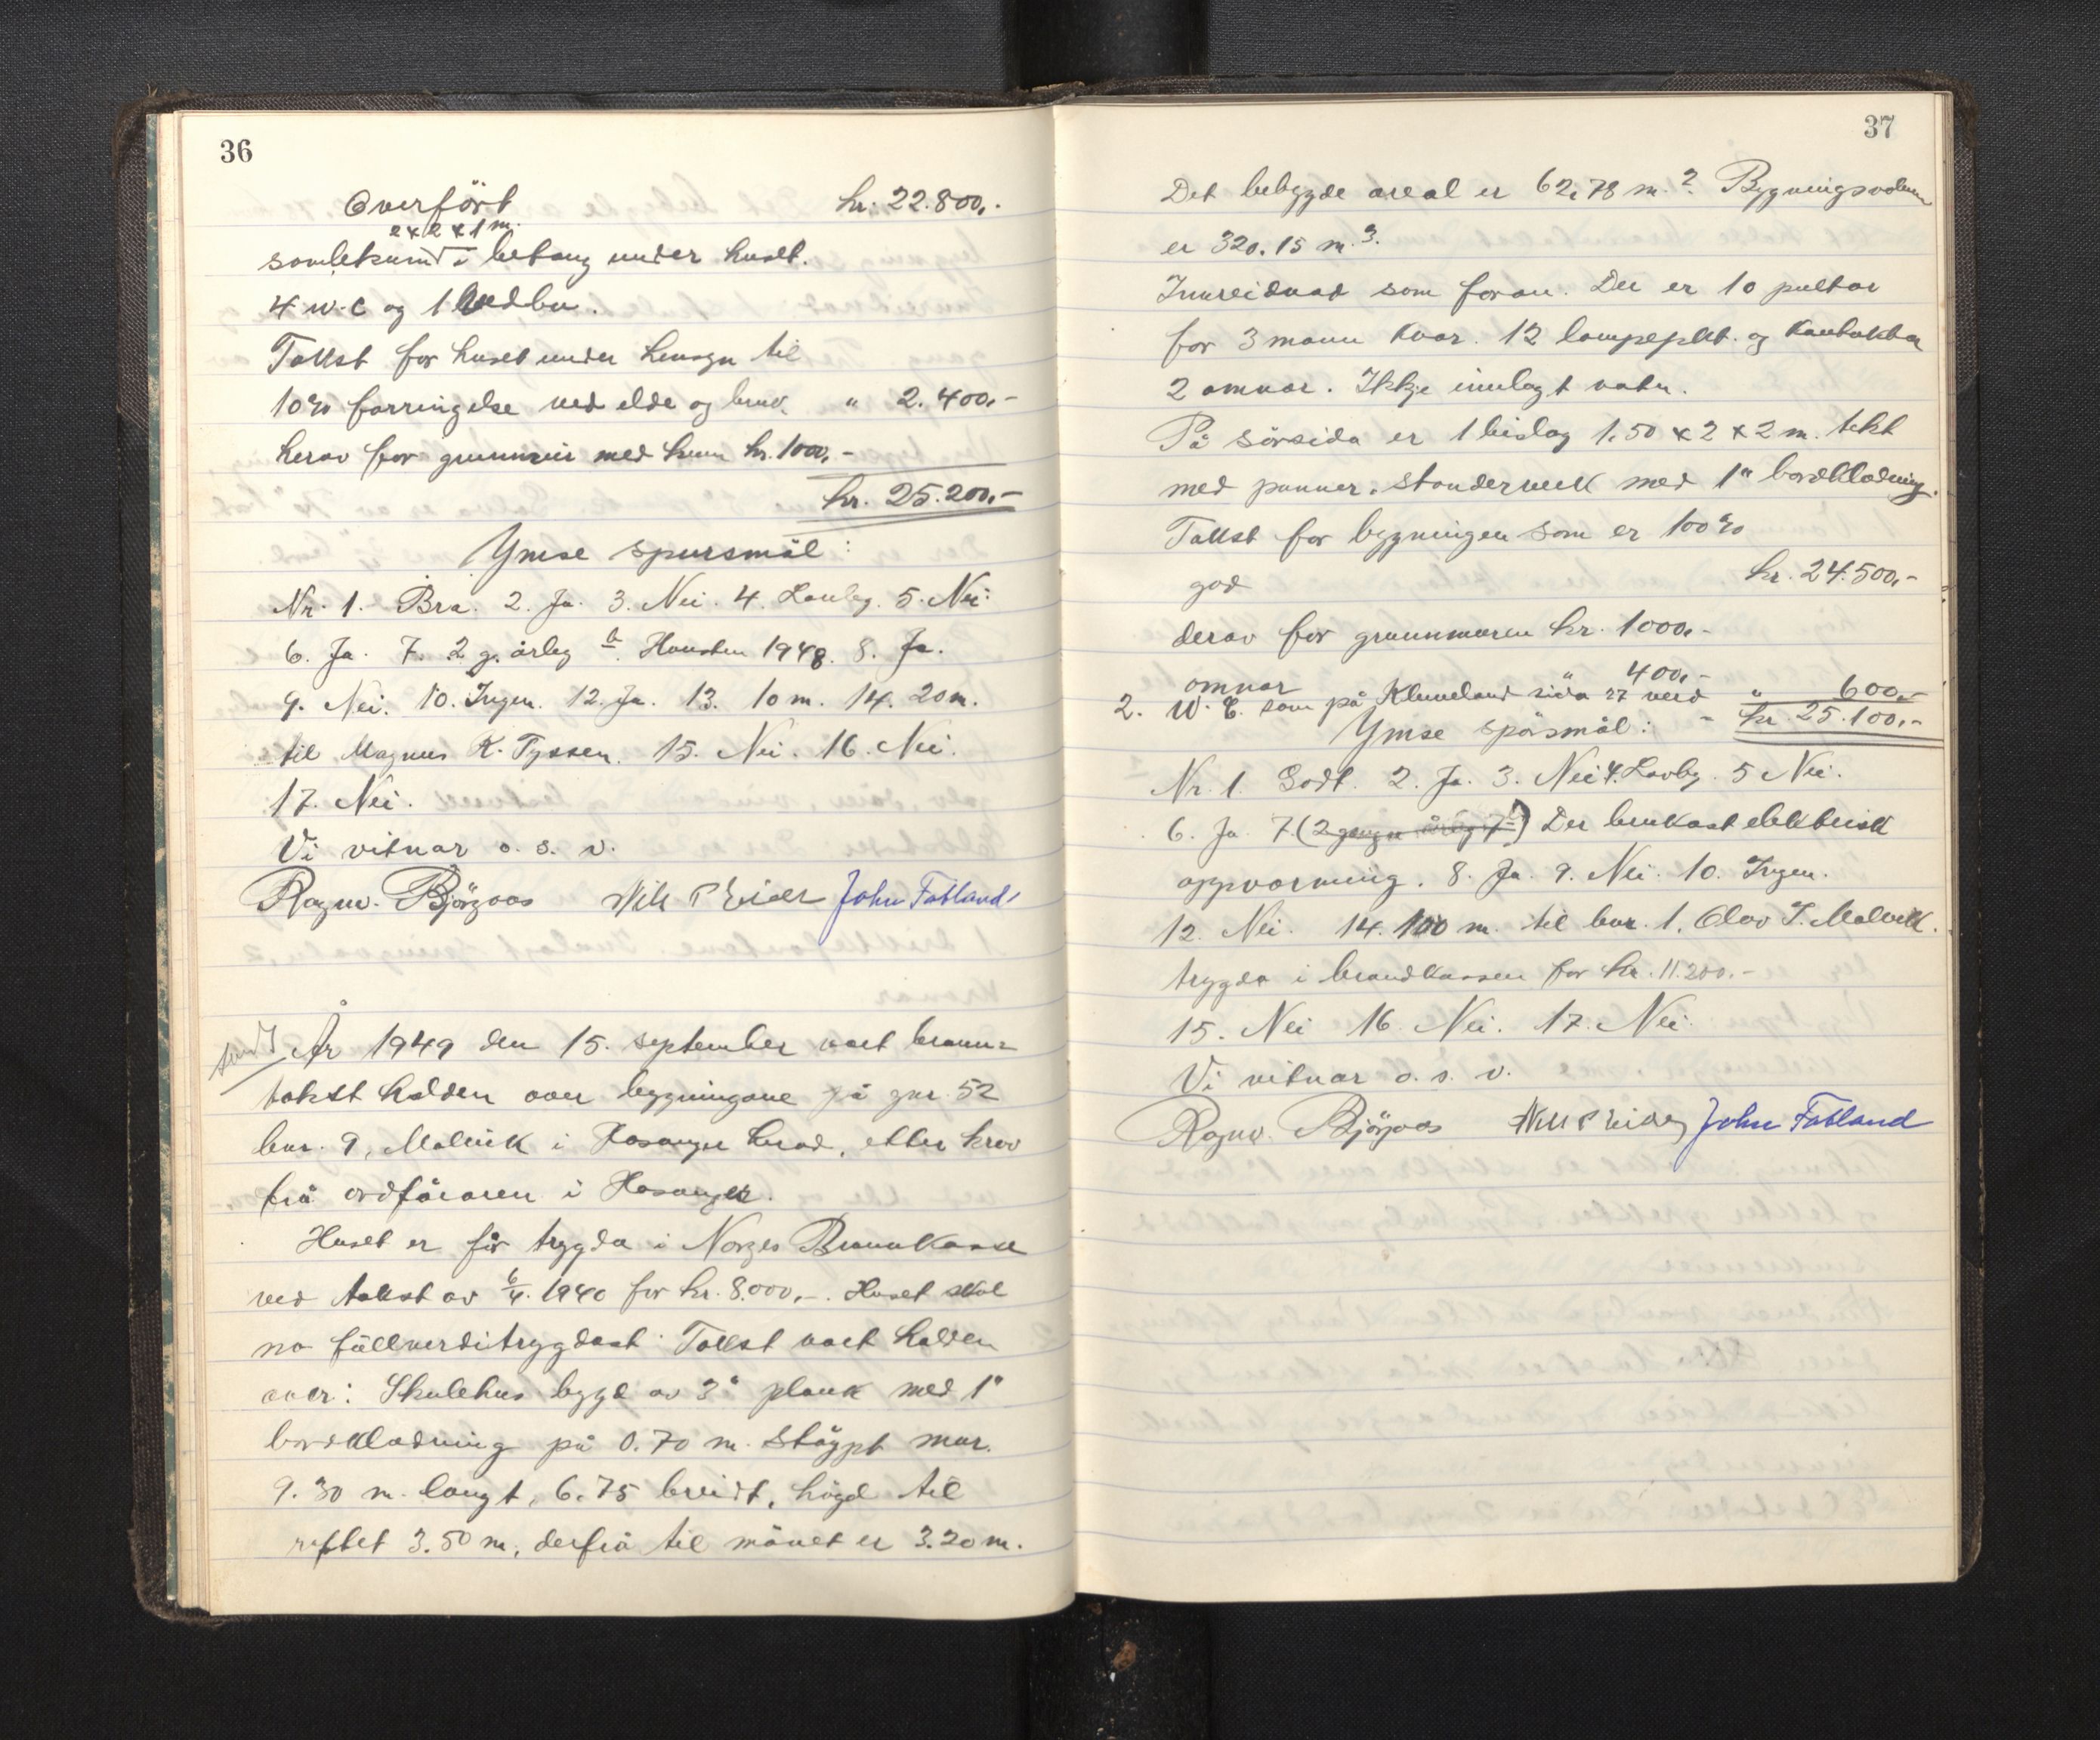 36
Overfört kr. 22.800,-
2 x 2 x 1 m.
samlekum i betong under huset.
4 w.c og 1 vedbu.
Takst for huset under hensyn til
10% forringelse ved elde og bruk. " 2.400,-
herav for grunnmur med kum kr. 1000,-
kr. 25.200,-
Ymse spursmål:
Nr. 1. Bra. 2. Ja. 3. Nei. 4. Lovleg. 5. Nei.
6. Ja. 7. 2 g. årleg b. Hausten 1948. 8. Ja.
9. Nei. 10. Ingen. 12. Ja. 13. 10 m. 14. 20 m.
til Magnus K. Tyssen. 15. Nei. 16. Nei.
17. Nei.
Vi vitnar o. s. v.
Ragnv. Björgaas Nils P Eider John Fatland
År 1949 den 15. september vart brann-
takst halden over bygningane på gnr. 52
bnr. 9, Malvik i Hosanger herad, etter krav
frå ordföraren i Hosanger.
Huset er för trygda i Norges Brannkasse
ved takst av 6/4. 1940 for kr. 8.000,-. Huset skal
no fullverditrygdast. Takst vart halden
over: Skulehus bygd av 3" plank med 1"
bordkledning på 0.70 m. støypt mur.
9.30 m. langt, 6.75 breidt, högd til
raftet 3.50 m, derfrå til mönet er 3.20 m.
37
Det bebygde areal er 62,78 m.2 Bygningsvolum
er 320.15 m.3.
Innreidnad som foran. Der er 10 pultar
for 3 mann kvar. 12 lampepkt. og kontaktar
2 omnar. Ikkje innlagt vatn.
På sörsida er 1 bislag 1.50 x 2 x 2 m. tekt
med panner. Standerverk med 1" bordkledning.
Takst for bygningen som er 100%
god kr. 24.500,-
derav for grunnmuren kr. 1000,-
omnar " 400,-
2. W.C. som på Kleiveland sida 27 verd " 600,-
Ymse spörsmål: - kr. 25.100,-
Nr. 1. Godt. 2. Ja. 3. Nei 4. Lovleg. 5 Nei.
6. Ja. 7. (2 gangen årleg 7b) Der brukast elektrisk
oppvarming. 8. Ja. 9. Nei. 10. Ingen.
12. Nei. 14. 100 m. til bnr. 1. Olav I. Malvik.
trygda i brandkassen for kr. 11.200.-
15. Nei 16. Nei. 17. Nei.
Vi vitnar o. s. v.
Ragnv. Björgaas Nils P Eider John Fatland